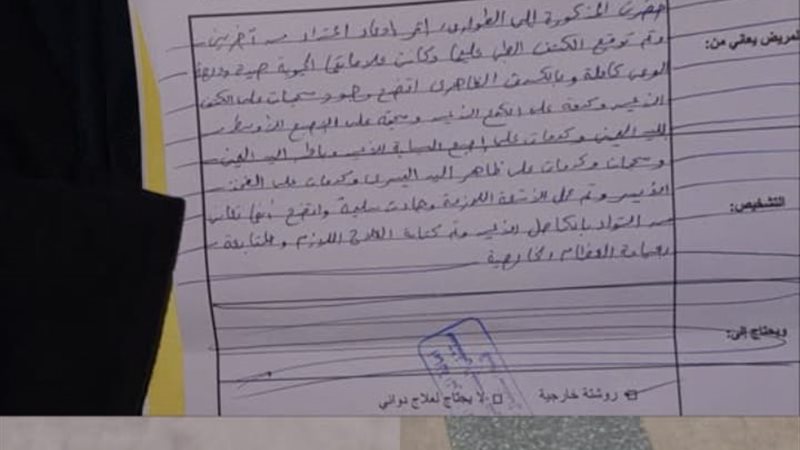 حضرت المذكورة إلى الطوارئ، إثر ادعاء اعتداء من آخرين
وتم توقيع الكشف الطبي عليها وكانت علاماتها الحيوية جيدة ودرجة
الوعي كاملة وبالكشف الظاهري اتضح وجود سحجات على الكتف
الأيسر وكدمة على الكوع الأيسر وسحجة على الإصبع الأوسط
لليد اليمنى وكدمات على إصبع السبابة الأيسر وباطن اليد اليمنى
وسحجات وكدمات على ظاهر اليد اليسرى وكدمات على الفخذ
الأيسر وتم عمل الأشعة اللازمة وجاءت سلبية واتضح أنها تعاني
من التواء بالكاحل الأيسر وتم كتابة العلاج اللازم والمتابعة
بعيادة العظام الخارجية
المريض يعاني من:
التشخيص:
ويحتاج إلى:
روشتة خارجية
لا يحتاج لعلاج دوائي